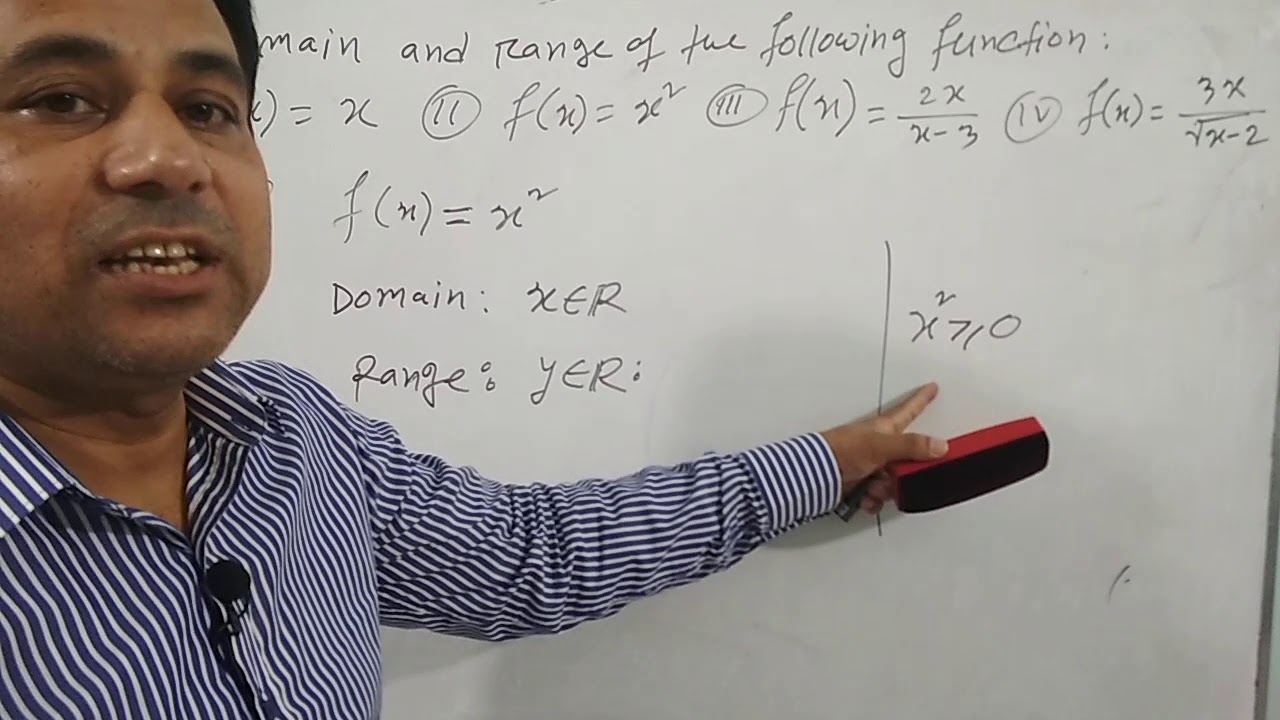 main and Range of the following function:
x) = x (II) f(x) = x² (III) f(x) = 2x/(x-3) (IV) f(x) = 3x/√(x-2)
f(x) = x²
Domain: x∈R
Range: y∈R:
x² ≥ 0